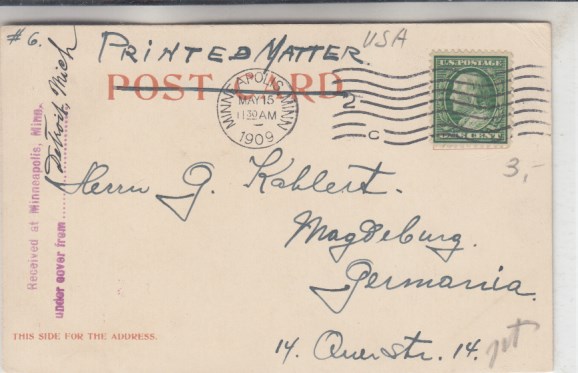 # 6.
PRINTED MATTER.
USA
POST CARD
MINNEAPOLIS, MINN.
MAY 15
11 30 AM
1909
2
C
U.S. POSTAGE
CENT
3,-
Received at Minneapolis, Minn.
under cover from Detroit, Mich
Herrn G. Kahlert.
Magdeburg.
Germania.
14. Querstr. 14.
THIS SIDE FOR THE ADDRESS.